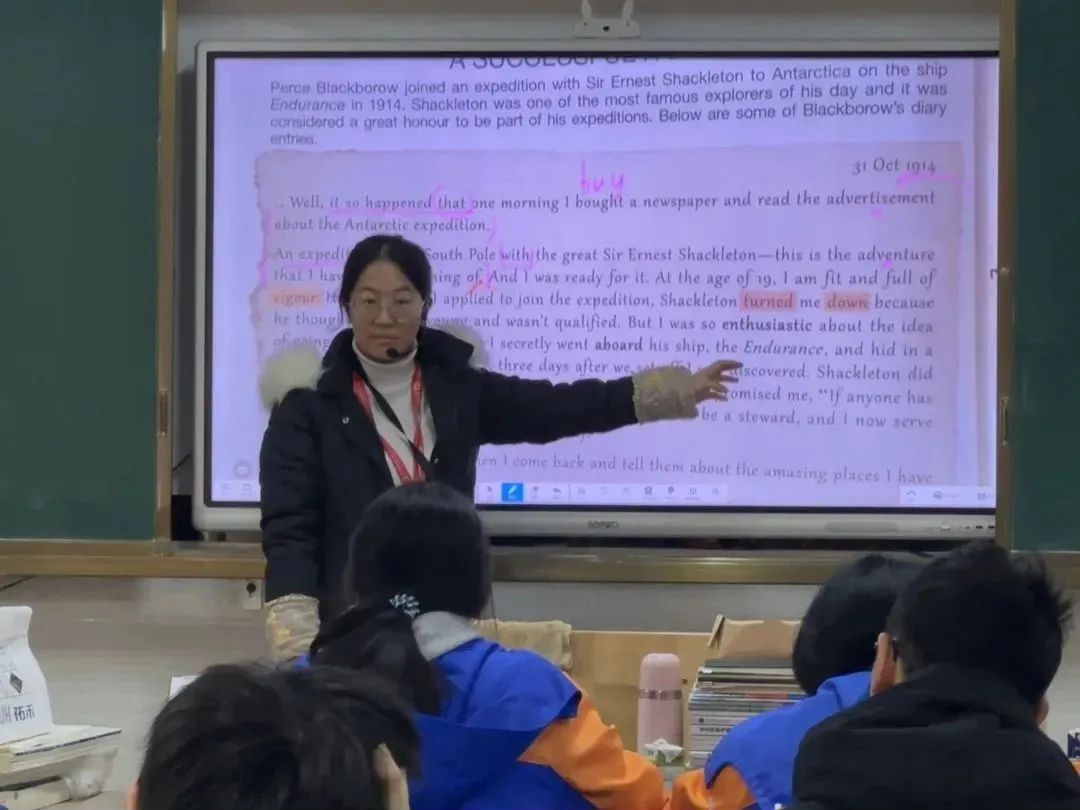 Perce Blackborow joined an expedition with Sir Ernest Shackleton to Antarctica on the ship
Endurance in 1914. Shackleton was one of the most famous explorers of his day and it was
considered a great honour to be part of his expeditions. Below are some of Blackborow's diary
entries.
31 Oct 1914
buy
... Well, it so happened that one morning I bought a newspaper and read the advertisement
about the Antarctic expedition.
An South Pole with the great Sir Ernest Shackleton—this is the adventure
that I of. And I was ready for it. At the age of 19, I am fit and full of
vigour. I applied to join the expedition, Shackleton turned me down because
he young and wasn't qualified. But I was so enthusiastic about the idea
of I secretly went aboard his ship, the Endurance, and hid in a
three days after we discovered. Shackleton did
me, "If anyone has
be a steward, and I now serve
I come back and tell them about the amazing places I have
祐禾